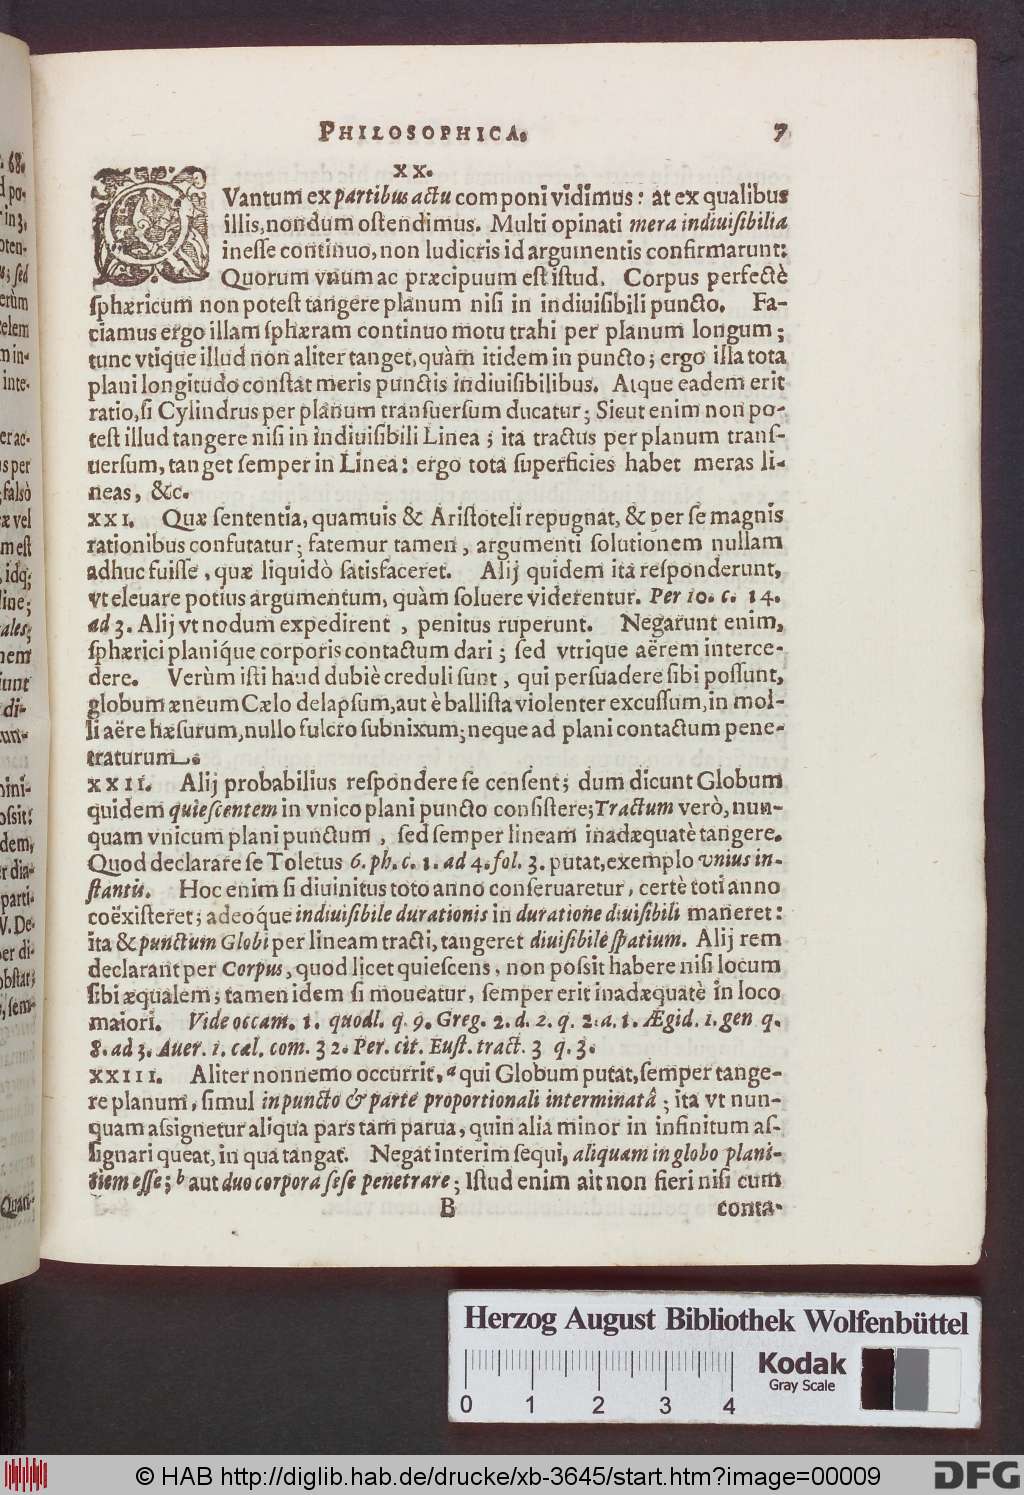 PHILOSOPHICA. 7
XX.
QVantum ex partibus actu componi vidimus: at ex qualibus
illis, nondum ostendimus. Multi opinati mera indiuisibilia
inesse continuo, non ludicris id argumentis confirmarunt:
Quorum vnum ac præcipuum est istud. Corpus perfectè
sphæricum non potest tangere planum nisi in indiuisibili puncto. Fa-
ciamus ergo illam sphæram continuo motu trahi per planum longum;
tunc vtique illud non aliter tanget, quàm itidem in puncto; ergo illa tota
plani longitudo constat meris punctis indiuisibilibus. Atque eadem erit
ratio, si Cylindrus per planum transuersum ducatur; Sicut enim non po-
test illud tangere nisi in indiuisibili Linea; ita tractus per planum trans-
uersum, tanget semper in Linea: ergo tota superficies habet meras li-
neas, &c.
XXI. Quæ sententia, quamuis & Aristoteli repugnat, & per se magnis
rationibus confutatur; fatemur tamen, argumenti solutionem nullam
adhuc fuisse, quæ liquidò satisfaceret. Alij quidem ita responderunt,
vt eleuare potius argumentum, quàm soluere viderentur. Per 10. c. 14.
ad 3. Alij vt nodum expedirent, penitus ruperunt. Negarunt enim,
sphærici planíque corporis contactum dari; sed vtrique aërem interce-
dere. Verùm isti haud dubiè creduli sunt, qui persuadere sibi possunt,
globum æneum Cælo delapsum, aut è ballista violenter excussum, in mol-
li aëre hæsurum, nullo fulcro subnixum; neque ad plani contactum pene-
traturum.
XXII. Alij probabilius respondere se censent; dum dicunt Globum
quidem quiescentem in vnico plani puncto consistere; Tractum verò, nun-
quam vnicum plani punctum, sed semper lineam inadæquatè tangere.
Quod declarare se Toletus 6. ph. c. 1. ad 4. fol. 3. putat, exemplo vnius in-
stantis. Hoc enim si diuinitus toto anno conseruaretur, certè toti anno
coëxisteret; adeóque indiuisibile durationis in duratione diuisibili maneret:
ita & punctum Globi per lineam tracti, tangeret diuisibile spatium. Alij rem
declarant per Corpus, quod licet quiescens, non possit habere nisi locum
sibi æqualem; tamen idem si moueatur, semper erit inadæquatè in loco
maiori. Vide occam. 1. quodl. q. 9. Greg. 2. d. 2. q. 2. a. 1. Ægid. 1. gen q.
8. ad 3. Auer. 1. cæl. com. 32. Per. cit. Eust. tract. 3 q. 3.
XXIII. Aliter nonnemo occurrit, a qui Globum putat, semper tange-
re planum, simul in puncto & parte proportionali interminatâ; ita vt nun-
quam assignetur aliqua pars tam parua, quin alia minor in infinitum as-
signari queat, in qua tangat. Negat interim sequi, aliquam in globo plani-
tiem esse; b aut duo corpora sese penetrare; Istud enim ait non fieri nisi cum
B conta-
Herzog August Bibliothek Wolfenbüttel
Kodak
Gray Scale
0 1 2 3 4
© HAB http://diglib.hab.de/drucke/xb-3645/start.htm?image=00009
DFG